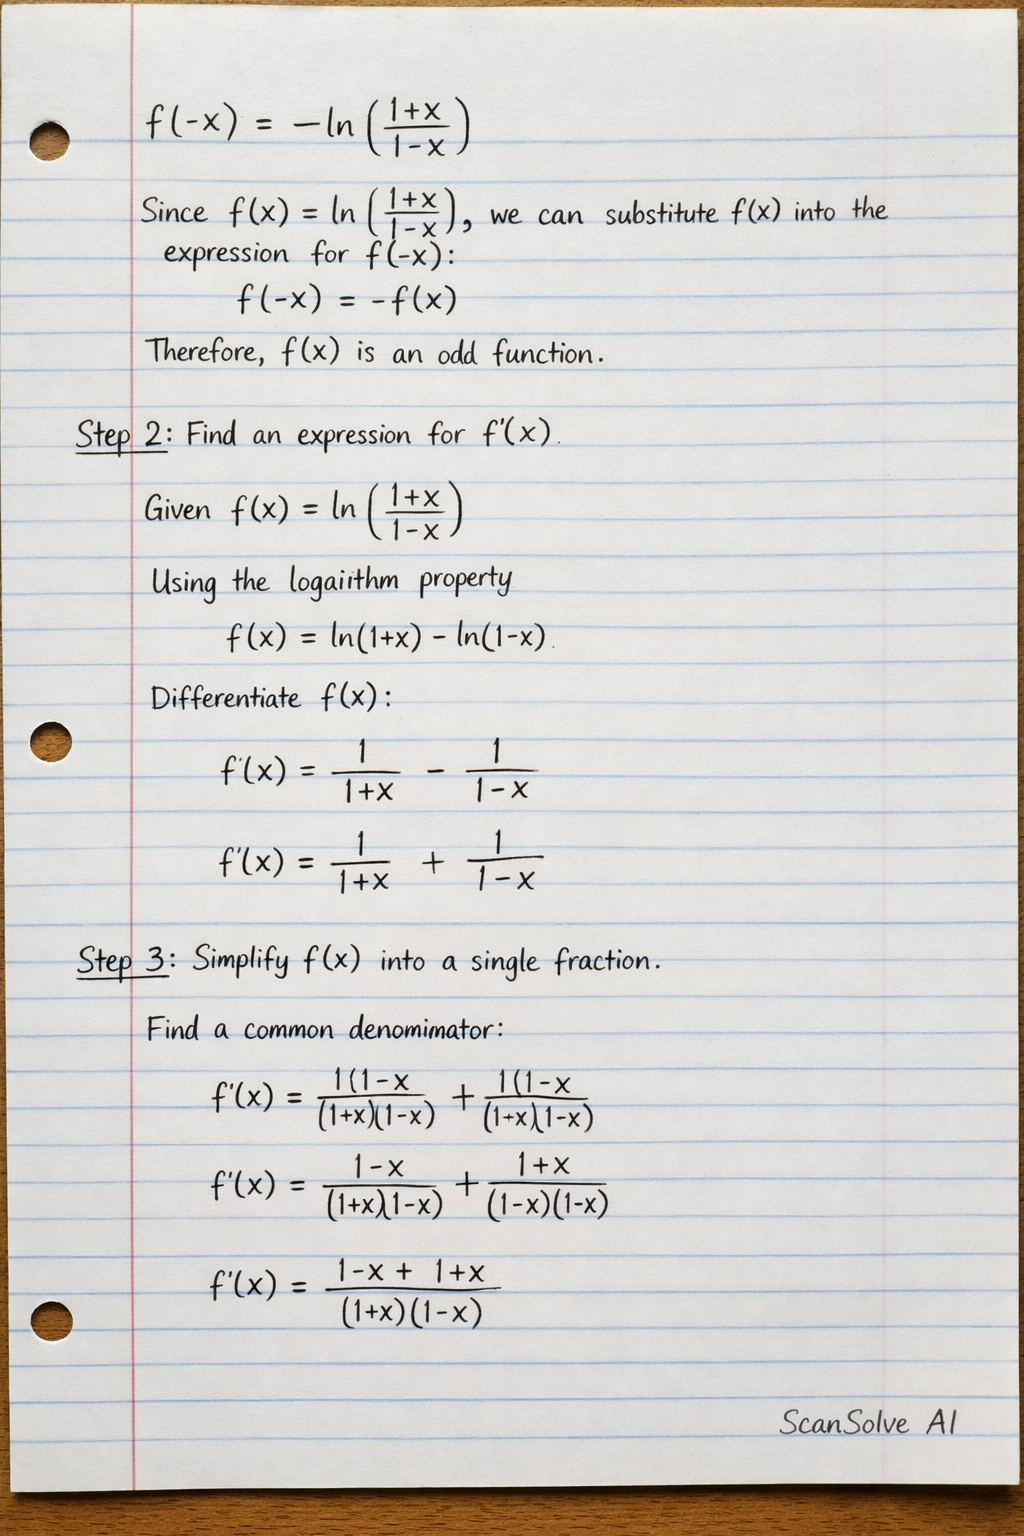 f(-x) = -ln(1+x/1-x)
Since f(x) = ln(1+x/1-x), we can substitute f(x) into the
expression for f(-x):
f(-x) = -f(x)
Therefore, f(x) is an odd function.
Step 2: Find an expression for f'(x).
Given f(x) = ln(1+x/1-x)
Using the logaiithm property
f(x) = ln(1+x) - ln(1-x).
Differentiate f(x):
f'(x) = 1/1+x - 1/1-x
f'(x) = 1/1+x + 1/1-x
Step 3: Simplify f(x) into a single fraction.
Find a common denomimator:
f'(x) = 1(1-x/(1+x)(1-x) + 1(1-x/(1+x)(1-x)
f'(x) = 1-x/(1+x)(1-x) + 1+x/(1-x)(1-x)
f'(x) = 1-x + 1+x/(1+x)(1-x)
ScanSolve AI